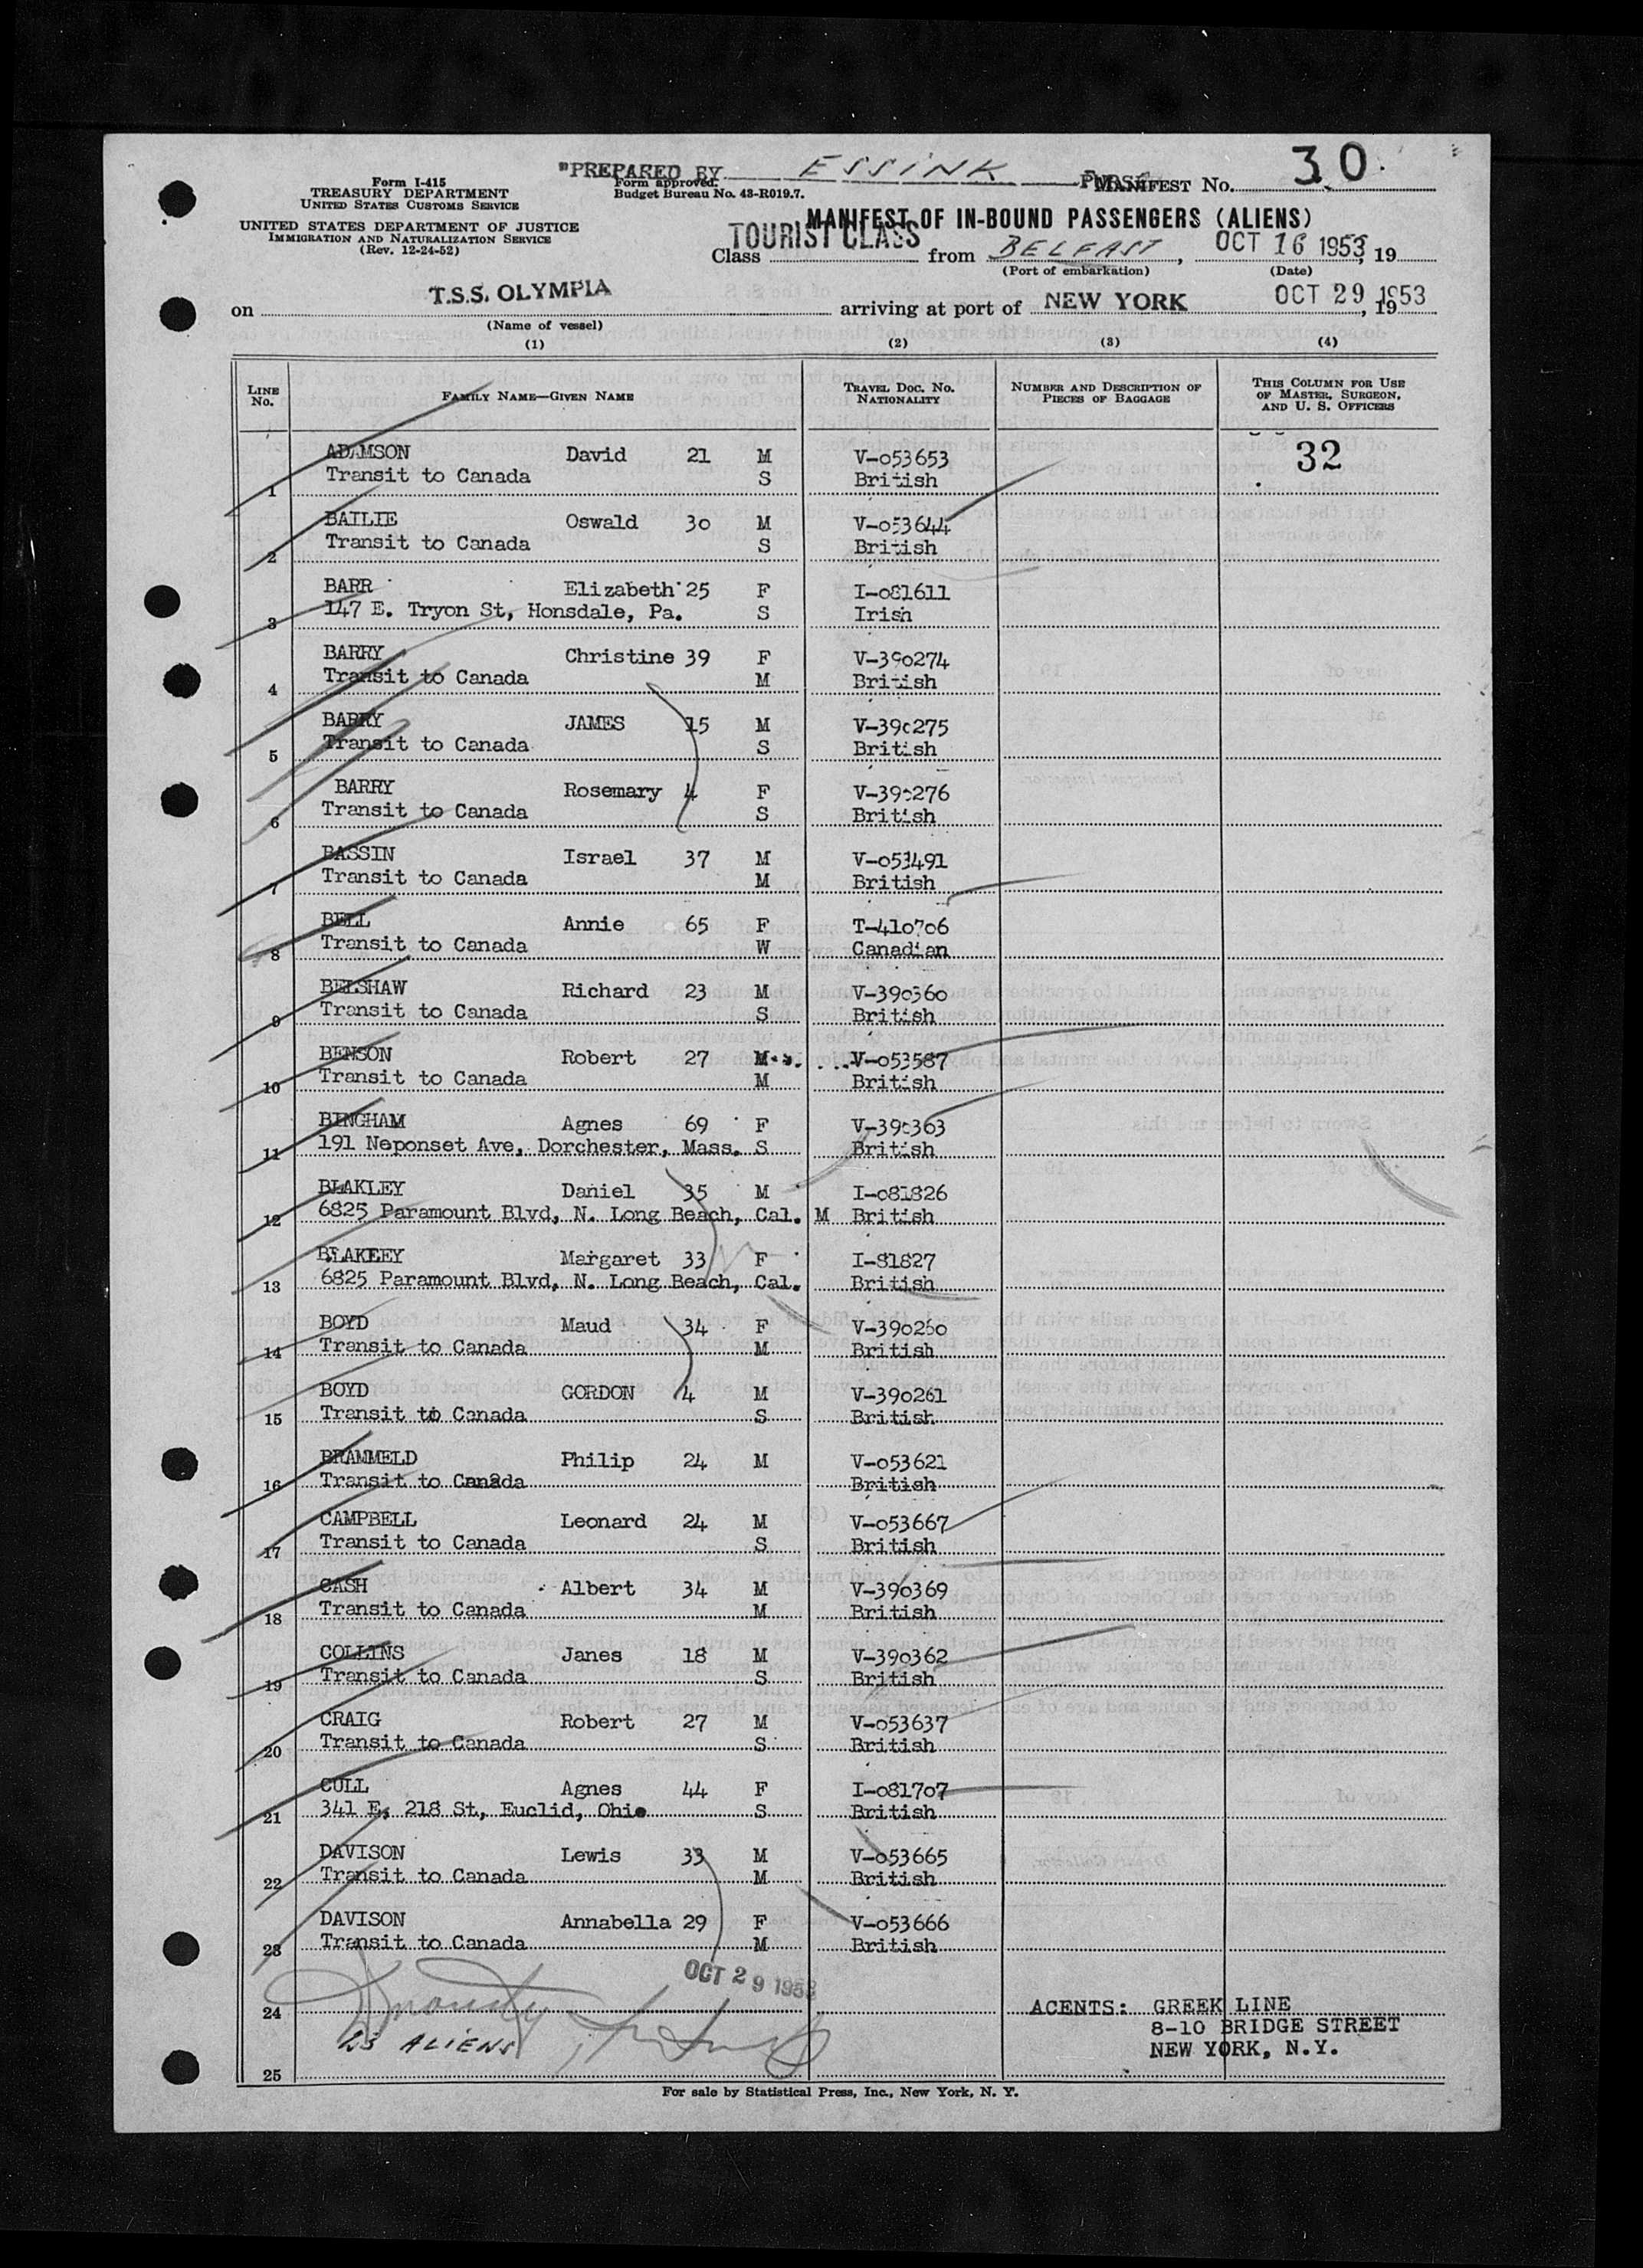 "PREPARED BY ESSINK PURSER
Form I-415
TREASURY DEPARTMENT
UNITED STATES CUSTOMS SERVICE
Form approved.
Budget Bureau No. 43-R019.7.
MANIFEST No. 30
UNITED STATES DEPARTMENT OF JUSTICE
IMMIGRATION AND NATURALIZATION SERVICE
(Rev. 12-24-52)
MANIFEST OF IN-BOUND PASSENGERS (ALIENS)
Class TOURIST CLASS from BELFAST, OCT 16 1953, 19
(Port of embarkation) (Date)
on T.S.S. OLYMPIA arriving at port of NEW YORK OCT 29 1953, 19
(Name of vessel)
(1) (2) (3) (4)
LINE No. FAMILY NAME—GIVEN NAME TRAVEL DOC. No. NATIONALITY NUMBER AND DESCRIPTION OF PIECES OF BAGGAGE THIS COLUMN FOR USE OF MASTER, SURGEON, AND U. S. OFFICERS
ADAMSON David 21 M V-053653 32
1 Transit to Canada S British
BAILIE Oswald 30 M V-053644
2 Transit to Canada S British
BARR Elizabeth 25 F I-081611
3 147 E. Tryon St, Honsdale, Pa. S Irish
BARRY Christine 39 F V-390274
4 Transit to Canada M British
BARRY JAMES 15 M V-390275
5 Transit to Canada S British
BARRY Rosemary 4 F V-390276
6 Transit to Canada S British
BASSIN Israel 37 M V-053491
7 Transit to Canada M British
BELL Annie 65 F T-410706
8 Transit to Canada W Canadian
BELSHAW Richard 23 M V-390360
9 Transit to Canada S British
BENSON Robert 27 M V-053587
10 Transit to Canada M British
BINGHAM Agnes 69 F V-390363
11 191 Neponset Ave, Dorchester, Mass. S British
BLAKLEY Daniel 35 M I-081826
12 6825 Paramount Blvd, N. Long Beach, Cal. M British
BLAKLEY Margaret 33 F I-81827
13 6825 Paramount Blvd, N. Long Beach, Cal. British
BOYD Maud 34 F V-390260
14 Transit to Canada M British
BOYD GORDON 4 M V-390261
15 Transit to Canada S British
BRAMMELD Philip 24 M V-053621
16 Transit to Canada British
CAMPBELL Leonard 24 M V-053667
17 Transit to Canada S British
CASH Albert 34 M V-390369
18 Transit to Canada M British
COLLINS Janes 18 M V-390362
19 Transit to Canada S British
CRAIG Robert 27 M V-053637
20 Transit to Canada S British
CULL Agnes 44 F I-081707
21 341 E, 218 St, Euclid, Ohio S British
DAVISON Lewis 33 M V-053665
22 Transit to Canada M British
DAVISON Annabella 29 F V-053666
23 Transit to Canada M British
OCT 29 1953
24 ACENTS: GREEK LINE
8-10 BRIDGE STREET
23 ALIENS NEW YORK, N.Y.
25
For sale by Statistical Press, Inc., New York, N. Y.